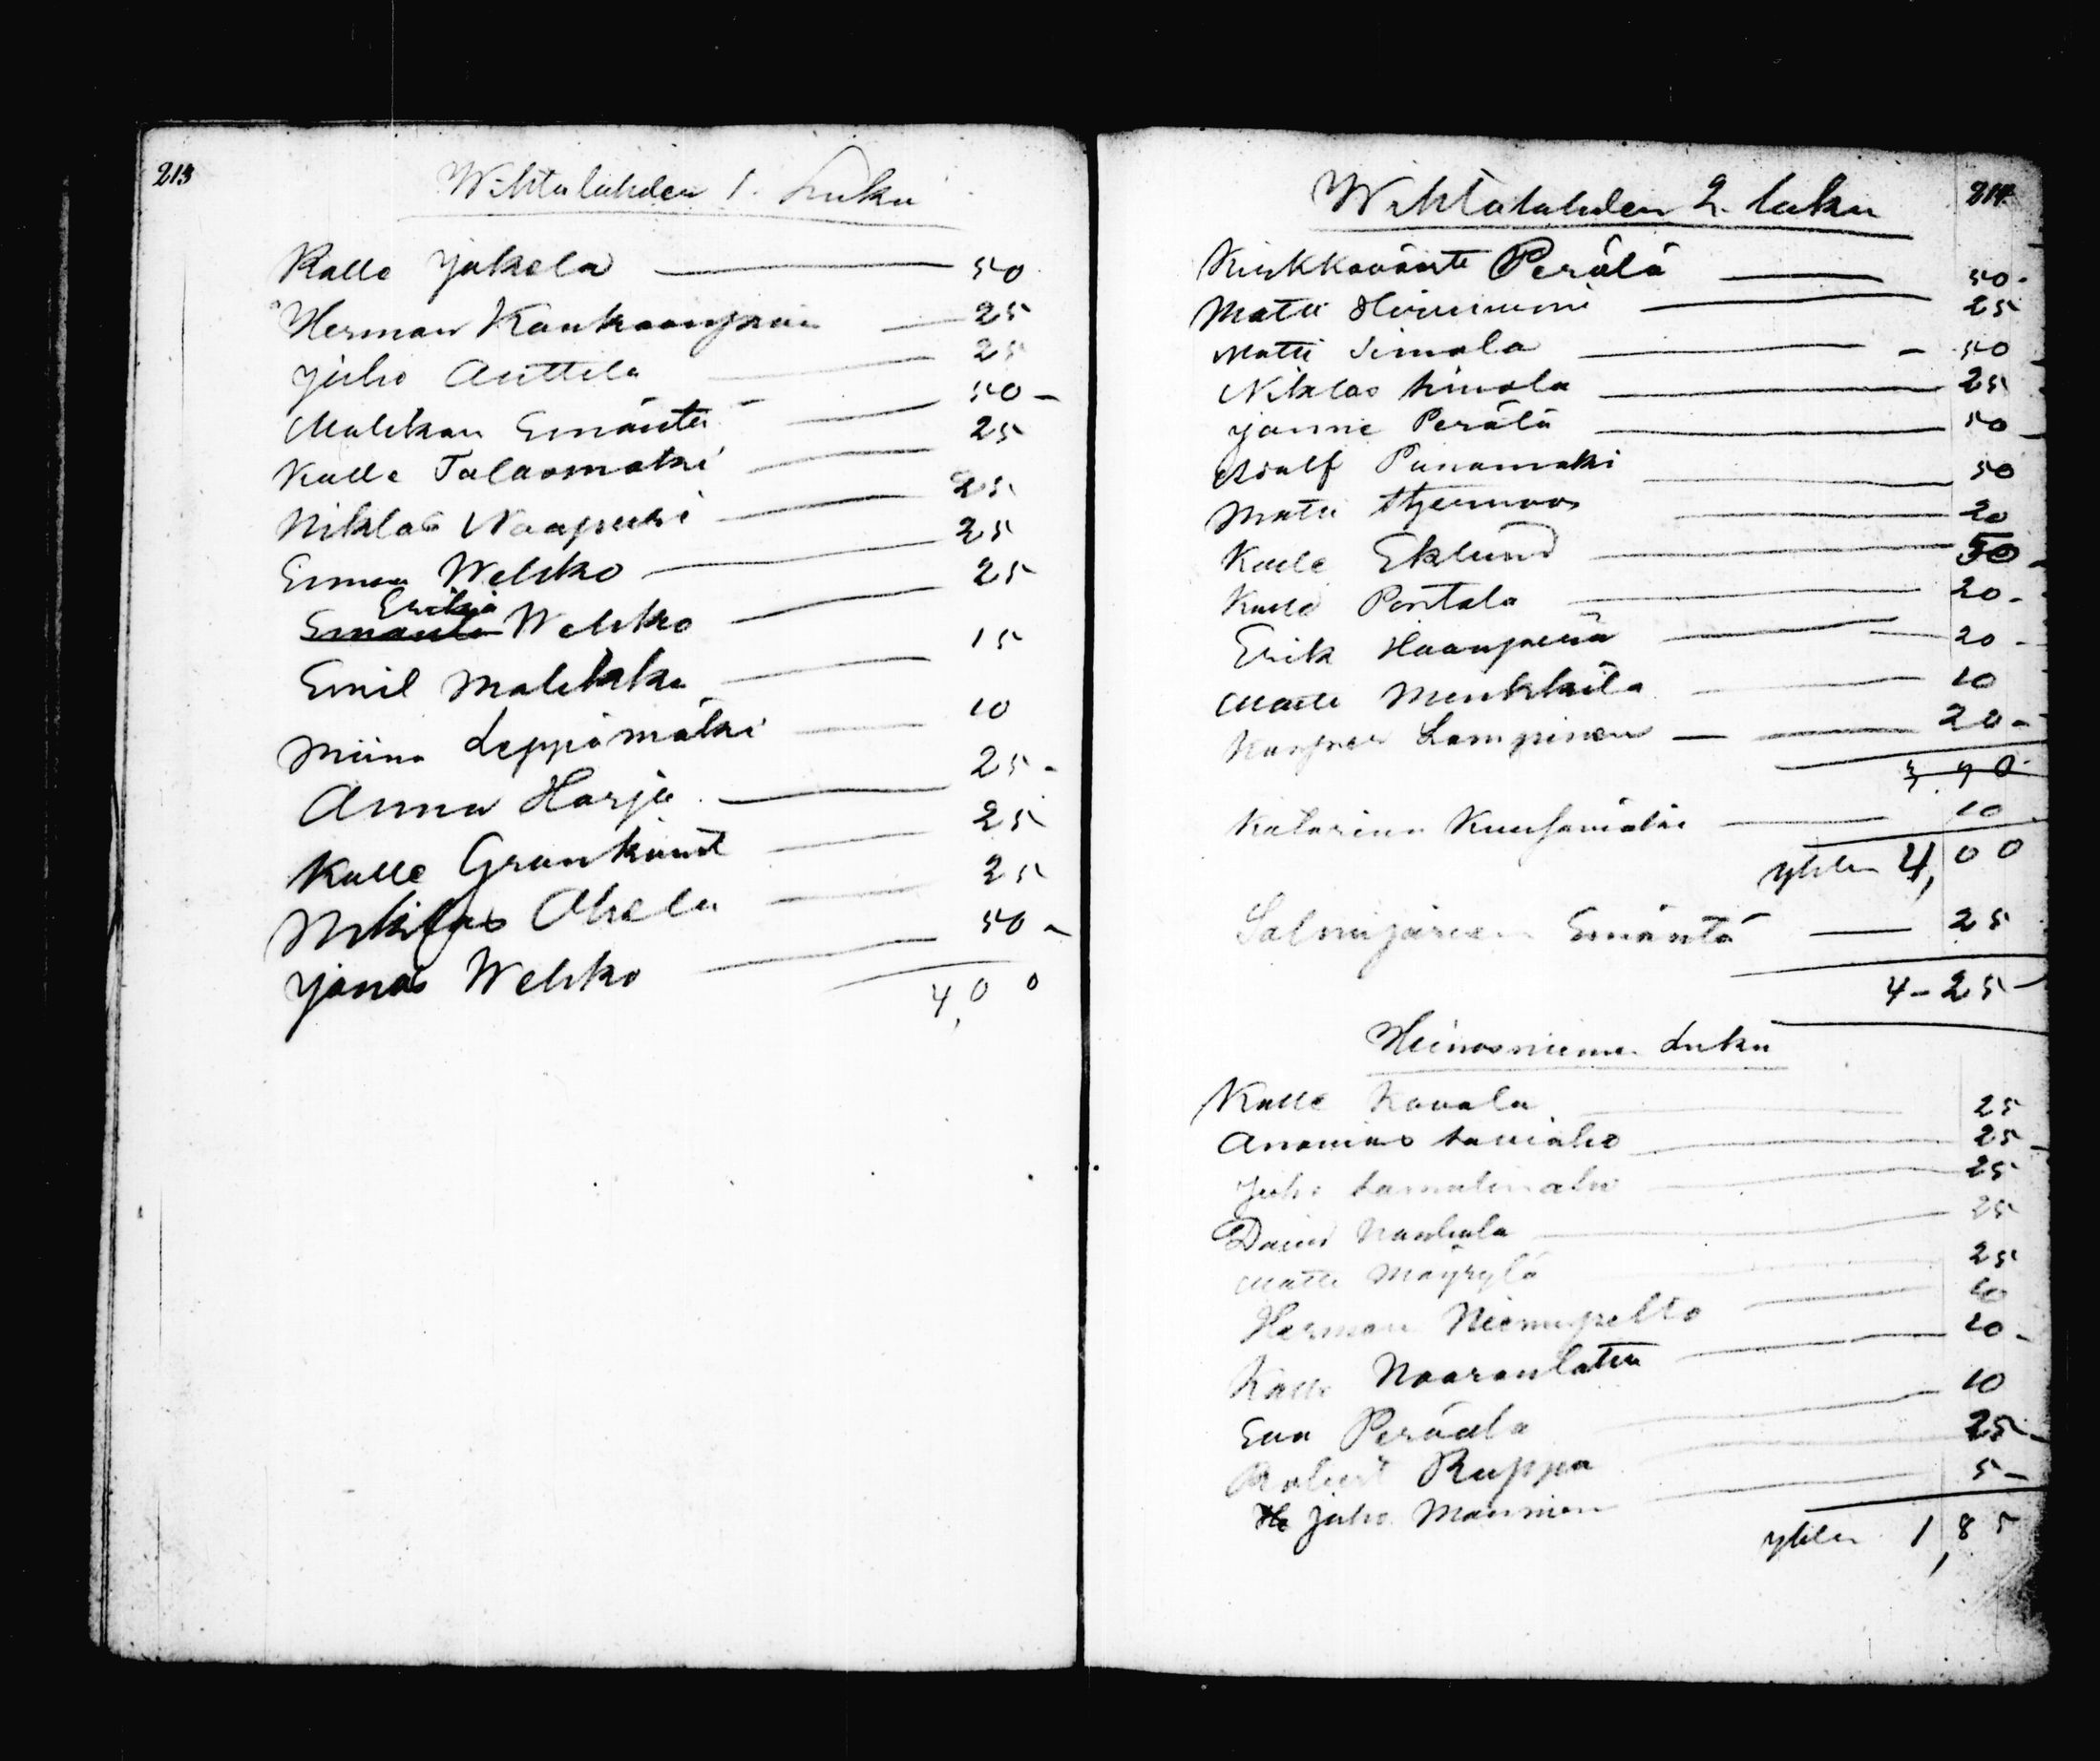 213
Wihtalahden 1. Luku
Kalle Jokela 50
Herman Kankaanpää 25
Juho Anttila 25
Malikan Emäntä 50 -
Kalle Talaomäki 25
Niklas Naapuri 25
Emma Wehko 25
Erikiä
Emäntä Wehko 25
Emil Malikka 15
Miina Leppämäki 10
Anna Harju 25 -
Kalle Grankvist 25
Nikilas Ahola 25
Jonas Wehko 50 -
4,00
214
Wihtalahden 2. luku
Kirkkoväärti Perälä 50 -
Matti Hirviniemi 25
Matti Simola 50
Niklas Simola 25
Janne Perälä 50 -
Adolf Punamäki 50
Matti Stjernvos 20
Kalle Eklund 50 -
Kalle Pentala 20 -
Erik Haanpää 20 -
Matti Menkkilä 10
Kasper Lampinen 20 -
3,90
Katarina 10
yhten 4,00
Salmijärven Emäntä 25
4 - 25
Heinosniemen Luku
Kalle Kavala 25
Ananias Saviaho 25 -
Juho 25
David Nanhala 25
Matti Mäyrylä 25
Herman Niemipelto 10
Kalle Naaranlahti 10 -
Eva Perälä 10
Robert Ruppa 25 -
He Juho Manninen 5 -
yhten 1,85